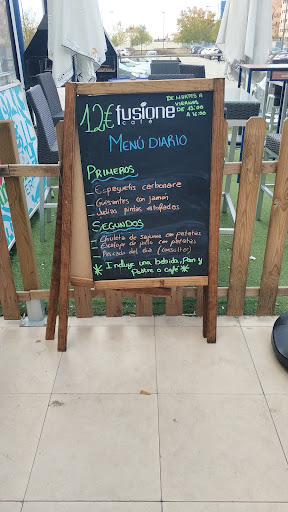 12€ fusione
cafe
DE MARTES A
VIERNES
DE 13:00
A 16:00
MENÚ DIARIO
PRIMEROS
- Espaguetis carbonara
- Guisantes con jamon
- Judias pintas estofadas
SEGUNDOS
- Chuleta de sajonia con patatas
- Escalope de pollo con patatas
- Pescado del dia (consultar)
* Incluye una bebida, Pan y
Postre o café *